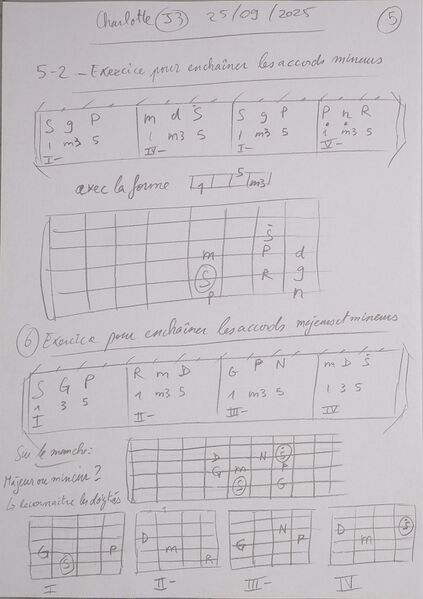 Charlotte J3 25/09/2025 5
5-2 - Exercice pour enchaîner les accords mineurs
S g P m d Ṡ S g P P n R
1 m3 5 1 m3 5 1 m3 5 1 m3 5
I- IV- I-
avec la forme 1 5 m3
Ṡ
m P d
S R g
P n
6 Exercice pour enchaîner les accords majeurs et mineurs
S G P R m D G P N m D Ṡ
1 3 5 1 m3 5 1 m3 5 1 3 5
I II- III- IV
Sur le manche:
Majeur ou mineur?
↳ reconnaître les doigtés
D N Ṡ
G m P
S G
G S P
D m R
N G P
D m Ṡ
I II- III- IV